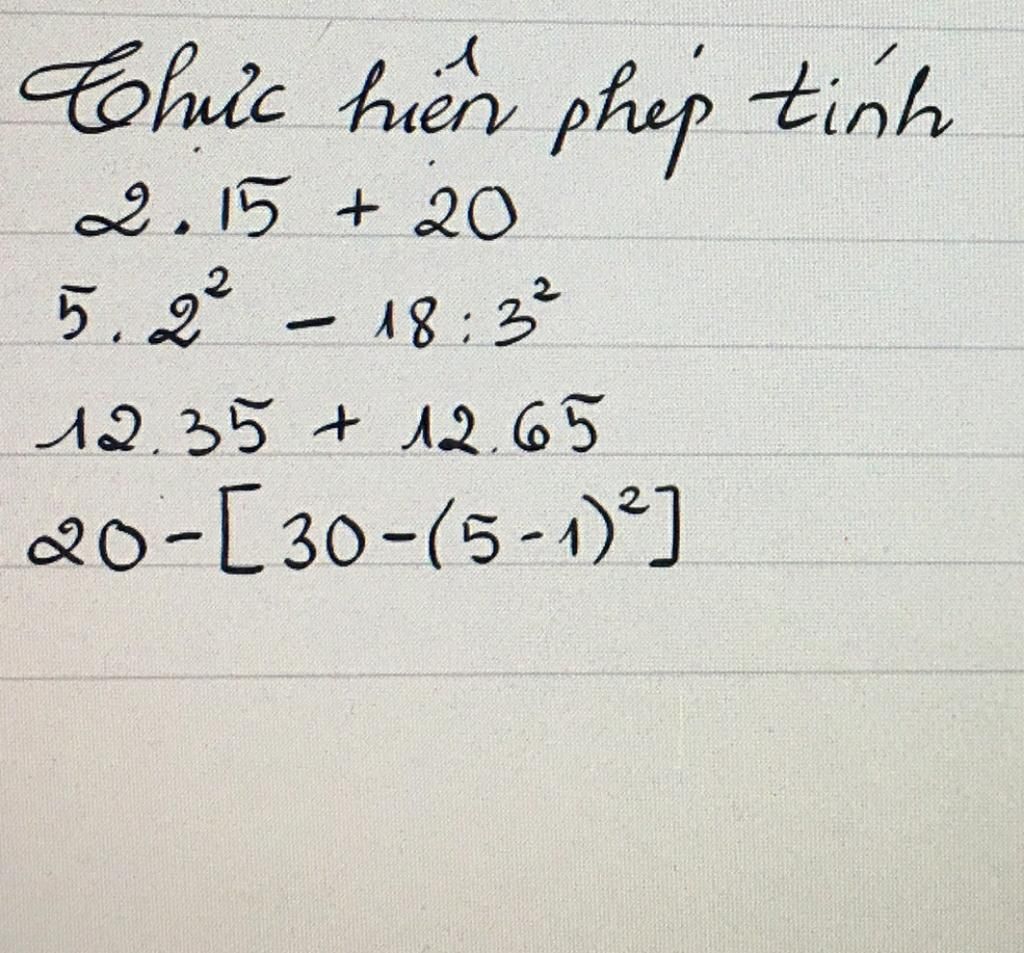 Thực hiện phép tính
2.15 + 20
5.2² - 18:3²
12.35 + 12.65
20-[30-(5-1)²]